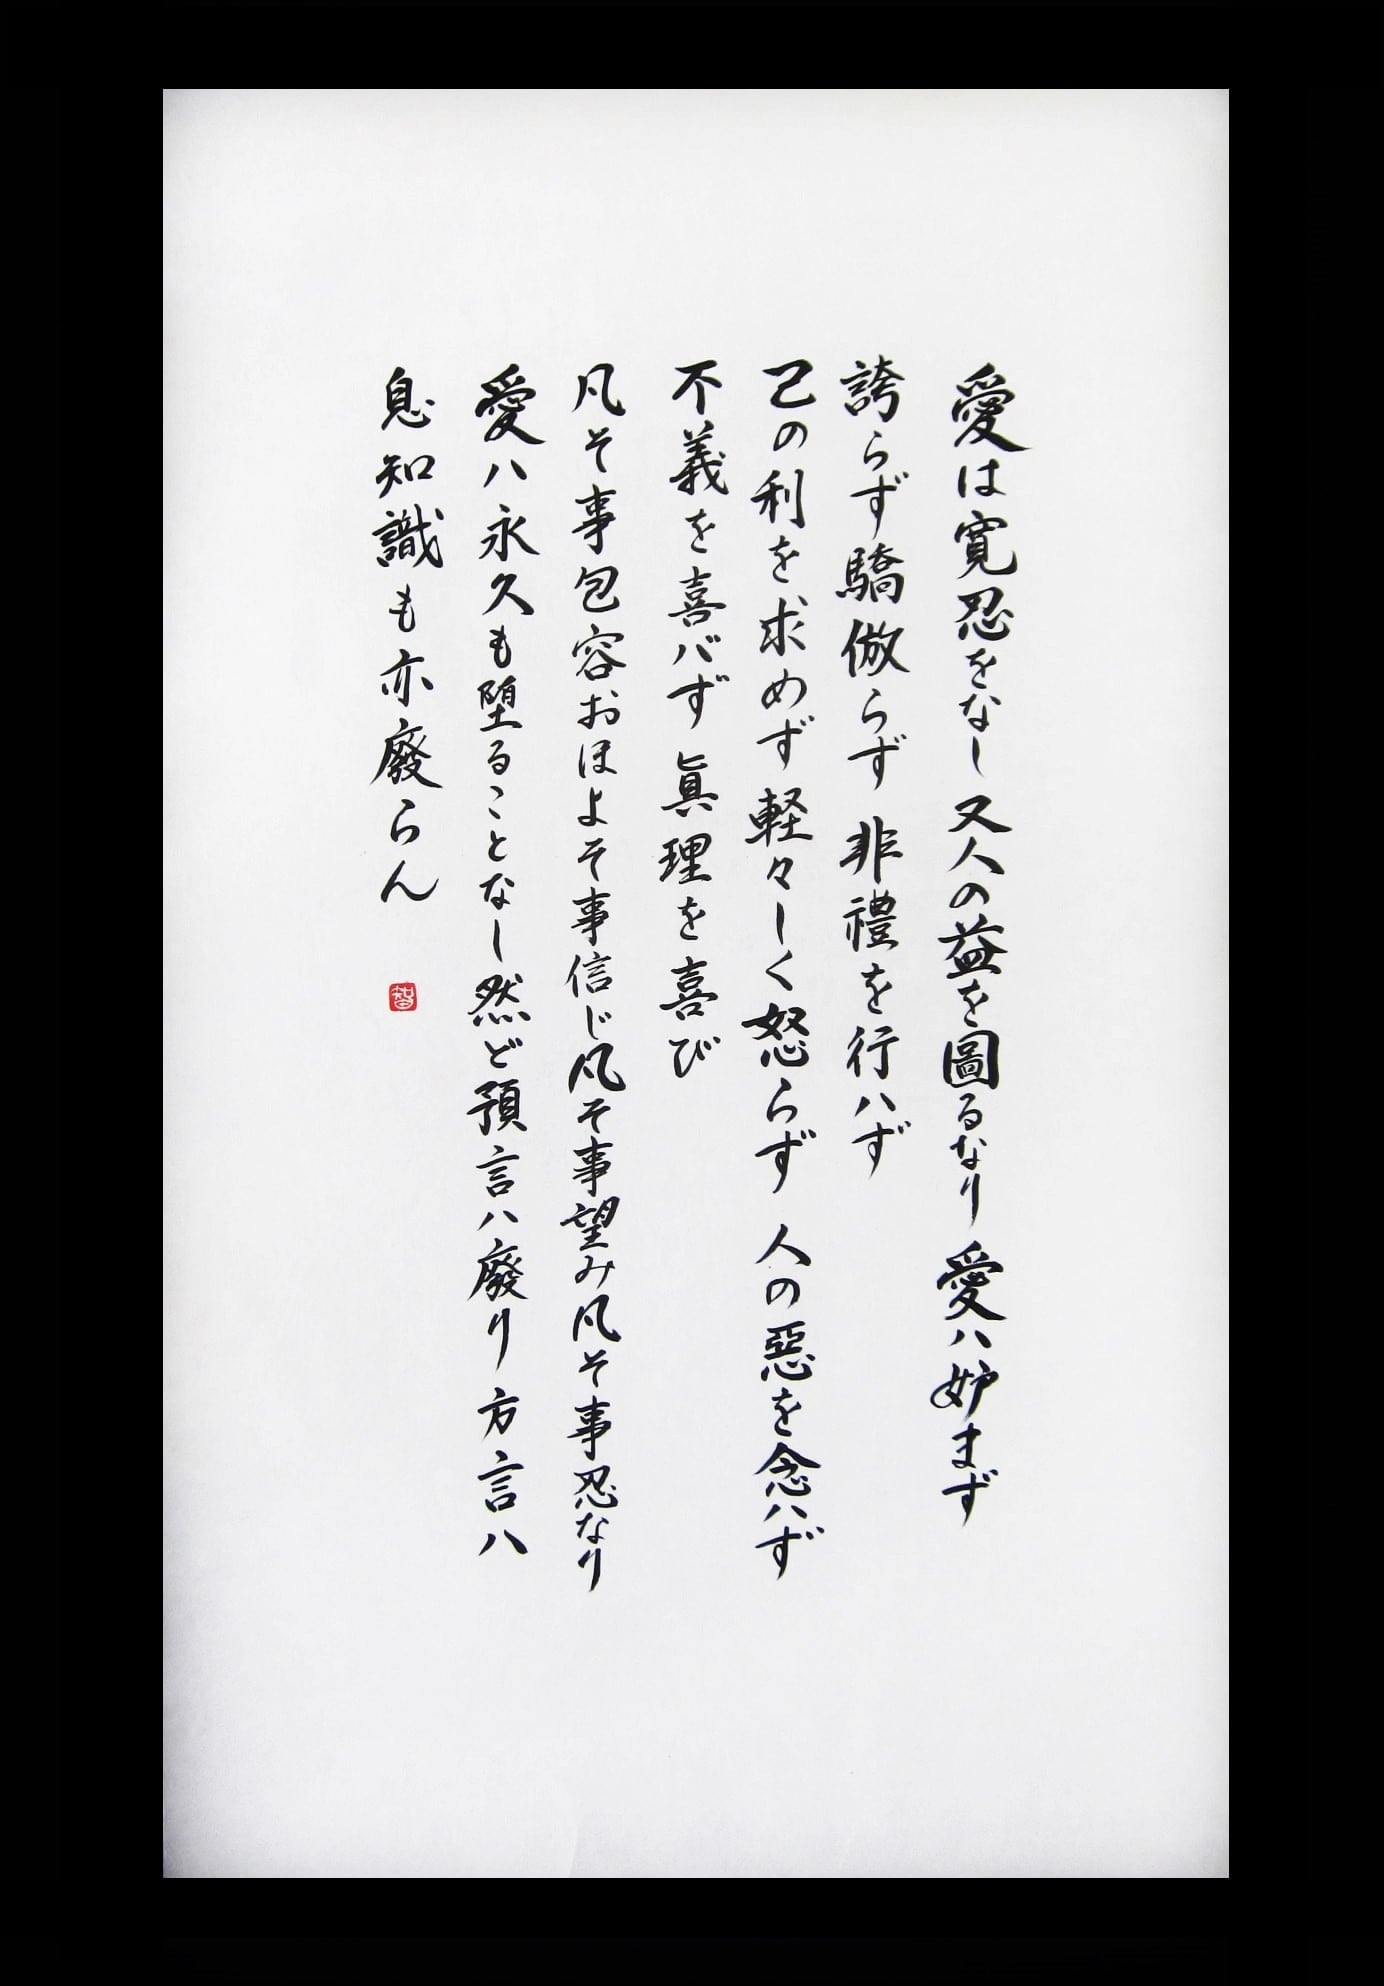 愛は寛忍をなし又人の益を圖るなり愛ハ妒まず
誇らず驕倣らず非禮を行ハず
己の利を求めず軽々しく怒らず人の惡を念ハず
不義を喜バず眞理を喜び
凡そ事包容おほよそ事信じ凡そ事望み凡そ事忍なり
愛ハ永久も堕ることなし然ど預言ハ廢り方言ハ
息知識も亦廢らん
智